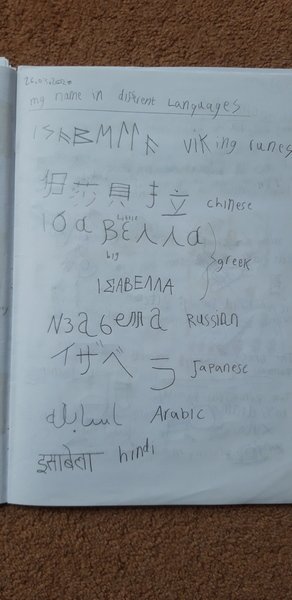 26.03.2020
my name in different Languages
ᛁᛊᚨᛒᛖᛚᛚᚨ viking runes
莎貝拉 chinese
little
Ισαβελλα
big
greek
ΙΣΑΒΕΛΛΑ
Изабелла Russian
イザベラ Japanese
Arabic
इसाबेला hindi